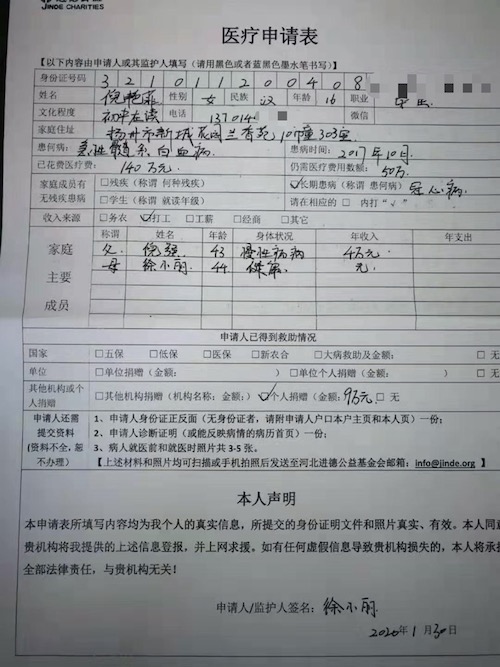 JINDE CHARITIES
医疗申请表
【以下内容由申请人或其监护人填写（请用黑色或者蓝黑色墨水笔书写）】
身份证号码 3 2 1 0 1 1 2 0 0 4 0 8
姓名 性别 女 民族 汉 年龄 16 职业 学生
文化程度 初中在读 电话 137014 微信
家庭住址 扬州市新城花园兰香苑10幢303室
患何病： 急性髓系白血病 患病时间： 2017年10月
已花费医疗费： 140万元 仍需医疗费用数额： 50万
家庭成员有无残疾患病 □残疾（称谓 何种残疾） ☑长期患病（称谓 患何病） 冠心病
□学生（称谓 就读年级） 请在相应的 □ 内打“√”
收入来源 □务农 ☑打工 □工薪 □经商 □其它
家庭主要成员 称谓 姓名 年龄 身体状况 年收入 年支出
父 倪强 43 慢性病 4万元
母 徐小丽 44 元
申请人已得到救助情况
国家 □五保 □低保 □医保 □新农合 □大病救助及金额： □ 无
单位 □单位捐赠（金额： ） □单位个人捐赠（金额： ） □ 无
其他机构或个人捐赠 □其他机构捐赠（机构名称；金额：） ☑个人捐赠（金额： 9万元 □ 无
申请人还需提交资料（资料不全，恕不办理） 1、申请人身份证正反面（无身份证者，请附申请人户口本户主页和本人页）一份；
2、申请人诊断证明（或能反映病情的病历首页）一份；
3、病人就医前和就医时照片共 3-5 张。
【上述材料和照片均可扫描或手机拍照后发送至河北进德公益基金会邮箱：info@jinde.org 】
本人声明
本申请表所填写内容均为我个人的真实信息，所提交的身份证明文件和照片真实、有效。本人同意
贵机构将我提供的上述信息登报，并上网求援。如有任何虚假信息导致贵机构损失的，本人将承担
全部法律责任，与贵机构无关！
申请人/监护人签名： 徐小丽
2020年 1 月 30日